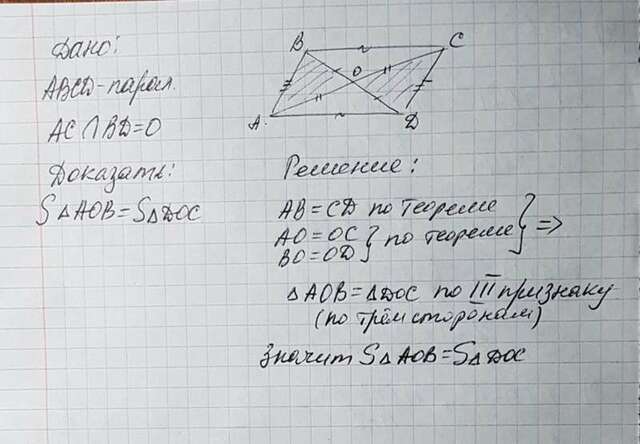 Дано:
ABCD-парал.
AC∩BD=O
Доказать:
S△AOB=S△DOC
B
C
O
A
D
Решение:
AB=CD по теореме
AO=OC
BO=OD } по теореме } =>
△AOB=△DOC по III признаку
(по трём сторонам)
Значит S△AOB=S△DOC